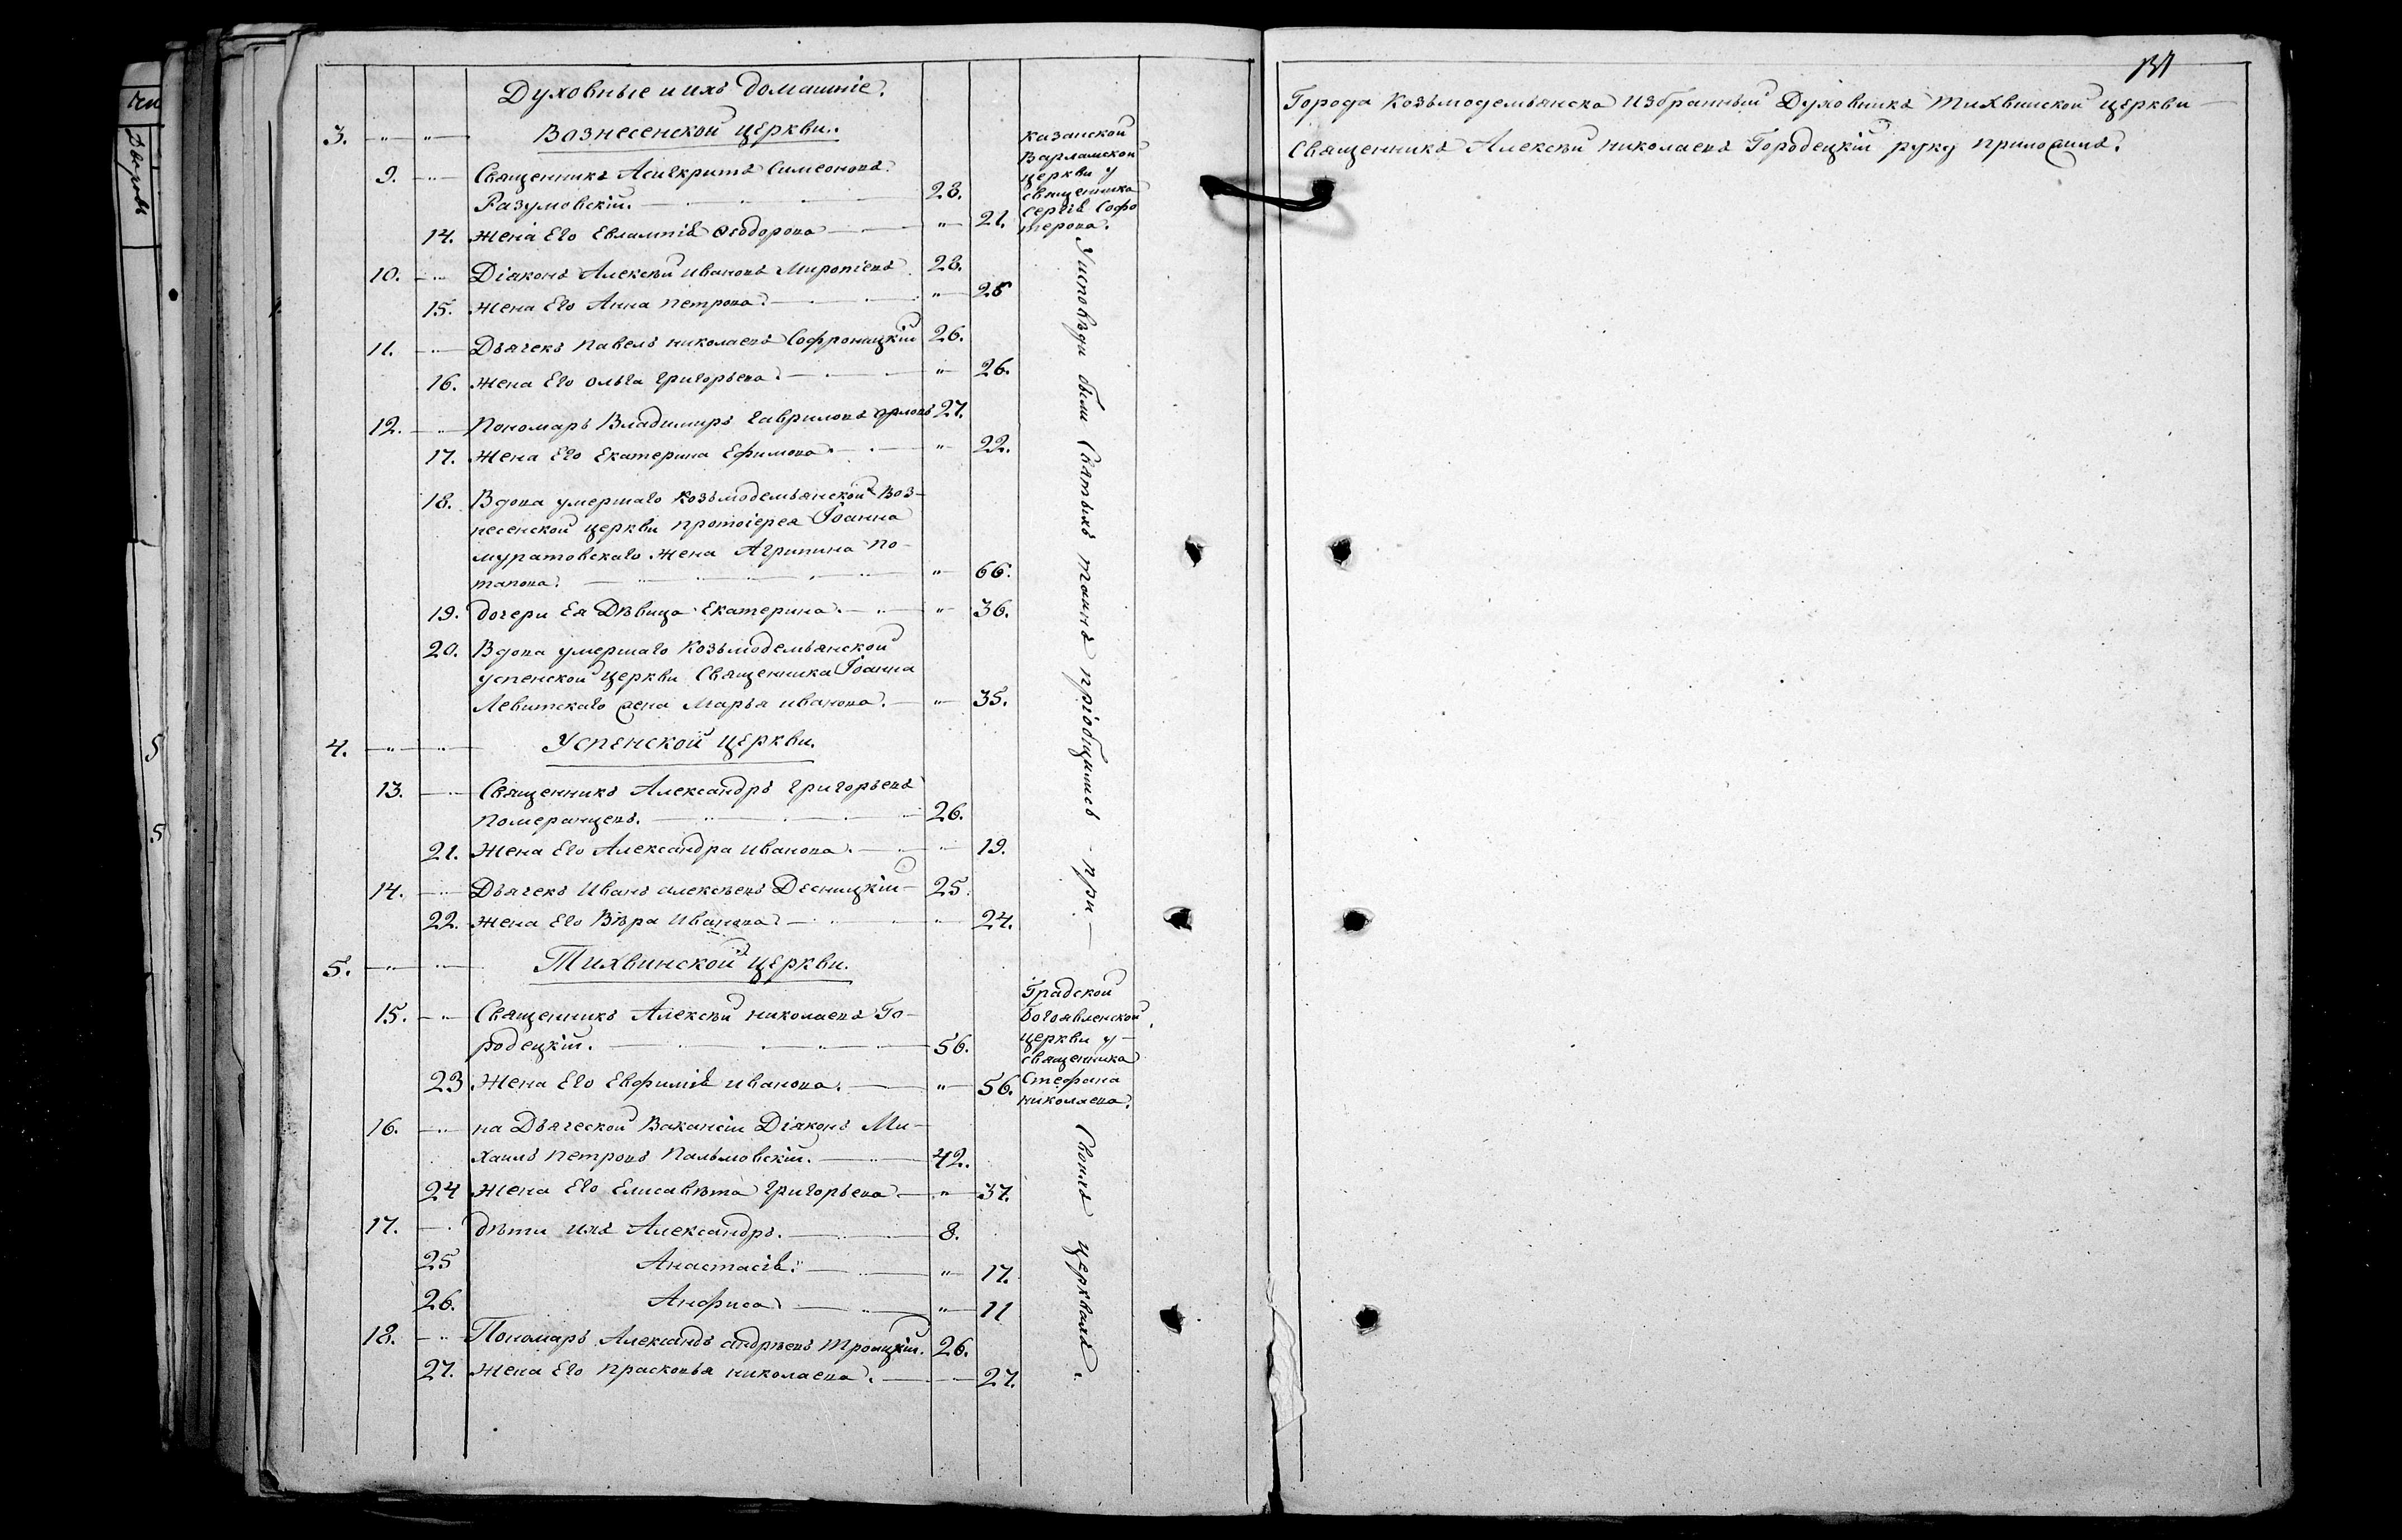 Духовные и ихъ домашніе.
3. Вознесенской церкви.
9. Священникъ Асигкритъ Симеоновъ
Разумовскій. 28.
14. жена Его Евлампія Феодорова 21.
10. Діаконъ Алексѣй Ивановъ Миропіевъ 28.
15. жена Его Анна Петрова. 25
11. Дьячекъ Павелъ Николаевъ Софроницкій 26.
16. жена Его Ольга Григорьева. 26.
12. Пономарь Владимиръ Гавриловъ Орловъ 27.
17. жена Его Екатерина Ефимова. 22.
18. Вдова умершаго Козьмодемьянской Воз-
несенской церкви протоіерея Іоанна
Муратовскаго жена Агрипина По-
тапова. 66.
19. дочери Ея Дѣвица Екатерина. 36.
20. Вдова умершаго Козьмодемьянской
Успенской церкви Священника Іоанна
Левитскаго жена Марья Иванова. 35.
4. Успенской церкви.
13. Священникъ Александръ Григорьевъ
Померанцевъ. 26.
21. жена Его Александра Иванова. 19.
14. Дьячекъ Иванъ Алексѣевъ Десницкій 25.
22. жена Его Вѣра Иванова 24.
5. Тихвинской церкви.
15. Священникъ Алексѣй Николаевъ Го-
родецкій. 56.
23 жена Его Евфимія Иванова. 56.
16. на Дьяческой Вакансіи Діаконъ Ми-
хаилъ Петровъ Пальмовскій. 42.
24 жена Его Елисавѣта Григорьева 37.
17. дѣти ихъ Александръ. 8.
25 Анастасія. 17.
26. Анфиса 11
18. Пономарь Александъ Андрѣевъ Троицкій. 26.
27. жена Его Прасковья Николаева. 27.
Казанской
Варламской
церкви у
священника
Сергія Софо
терова.
У исповѣди были Святыхъ таинъ пріобщились при
Градской
Богоявленской
церкви у
священника
Стефана
Николаева.
Своихъ церквахъ.
131
Города Козьмодемьянска Избранный Духовникъ Тихвинской церкви
Священникъ Алексѣй Николаевъ Городецкій руку приложилъ.
5
5